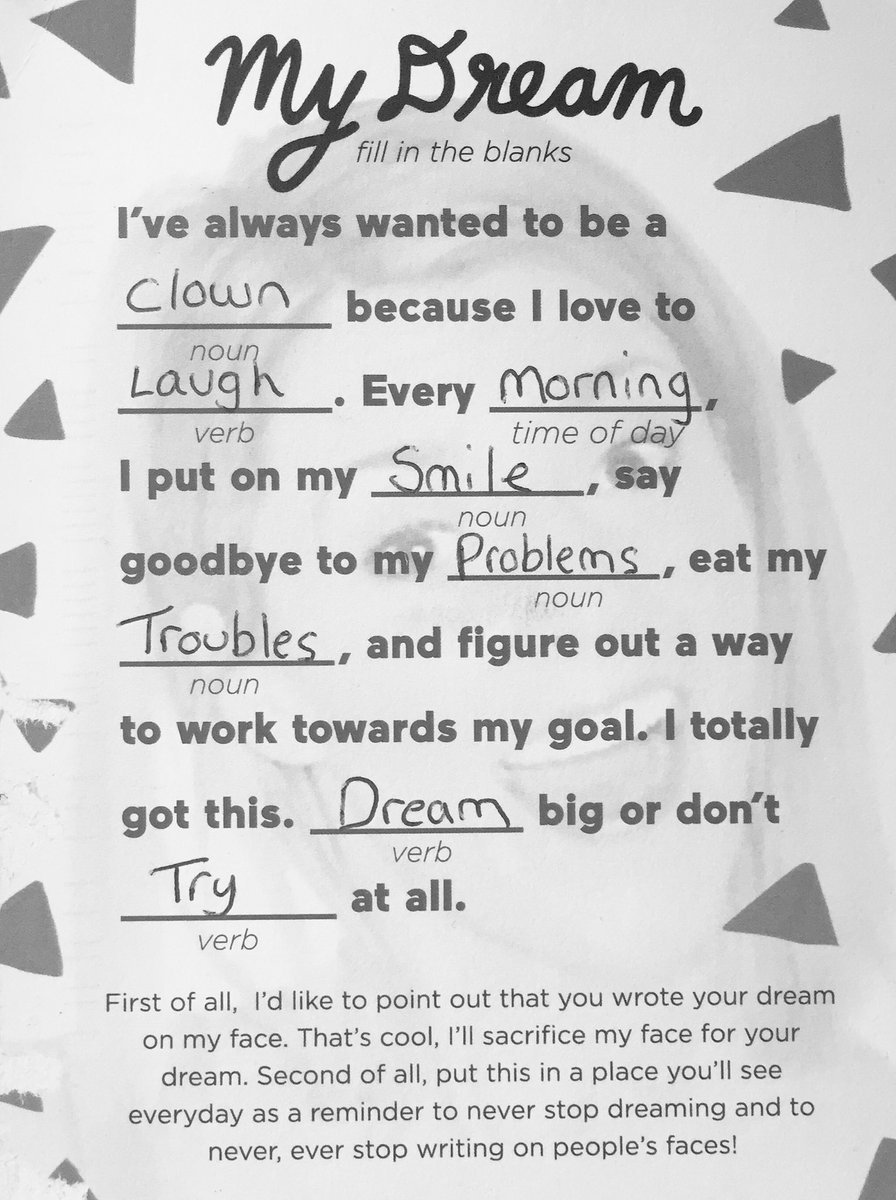 My Dream
fill in the blanks
I've always wanted to be a
Clown because I love to
noun
Laugh. Every Morning,
verb time of day
I put on my Smile, say
noun
goodbye to my Problems, eat my
noun
Troubles, and figure out a way
noun
to work towards my goal. I totally
got this. Dream big or don't
verb
Try at all.
verb
First of all, I'd like to point out that you wrote your dream
on my face. That's cool, I'll sacrifice my face for your
dream. Second of all, put this in a place you'll see
everyday as a reminder to never stop dreaming and to
never, ever stop writing on people's faces!